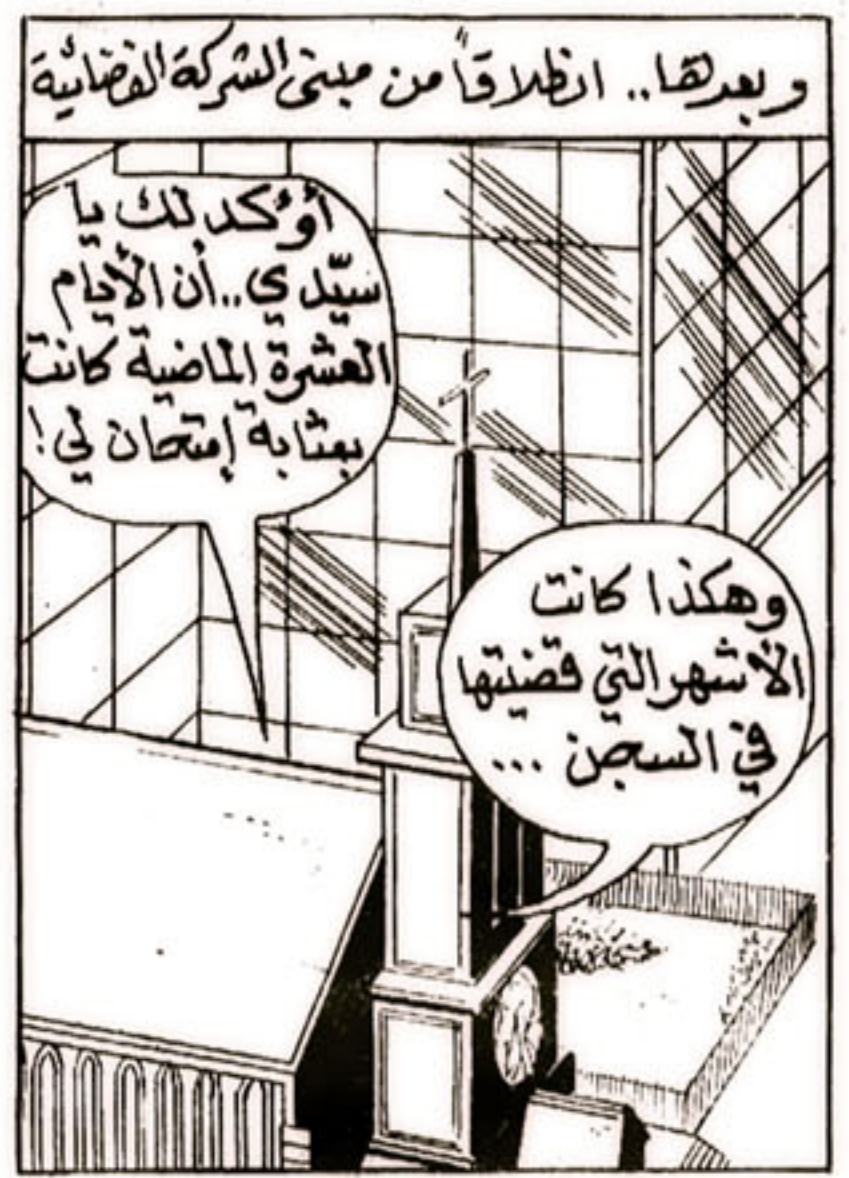 وبعدها.. انطلاقاً من مبنى الشركة الفضائية
أؤكد لك يا
سيّدي.. أن الأيام
العشرة الماضية كانت
بمثابة إمتحان لي!
وهكذا كانت
الأشهر التي قضيتها
في السجن ...